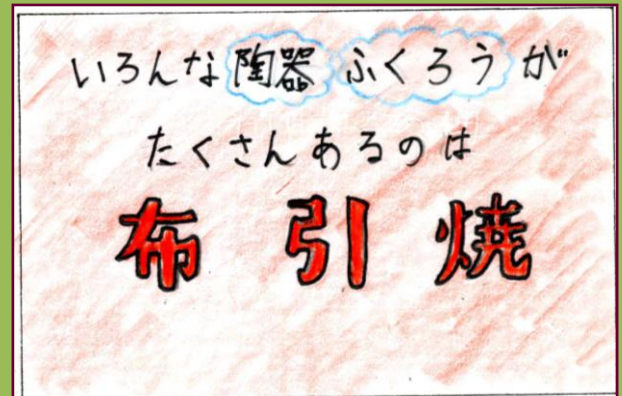 いろんな陶器ふくろうが
たくさんあるのは
布引焼